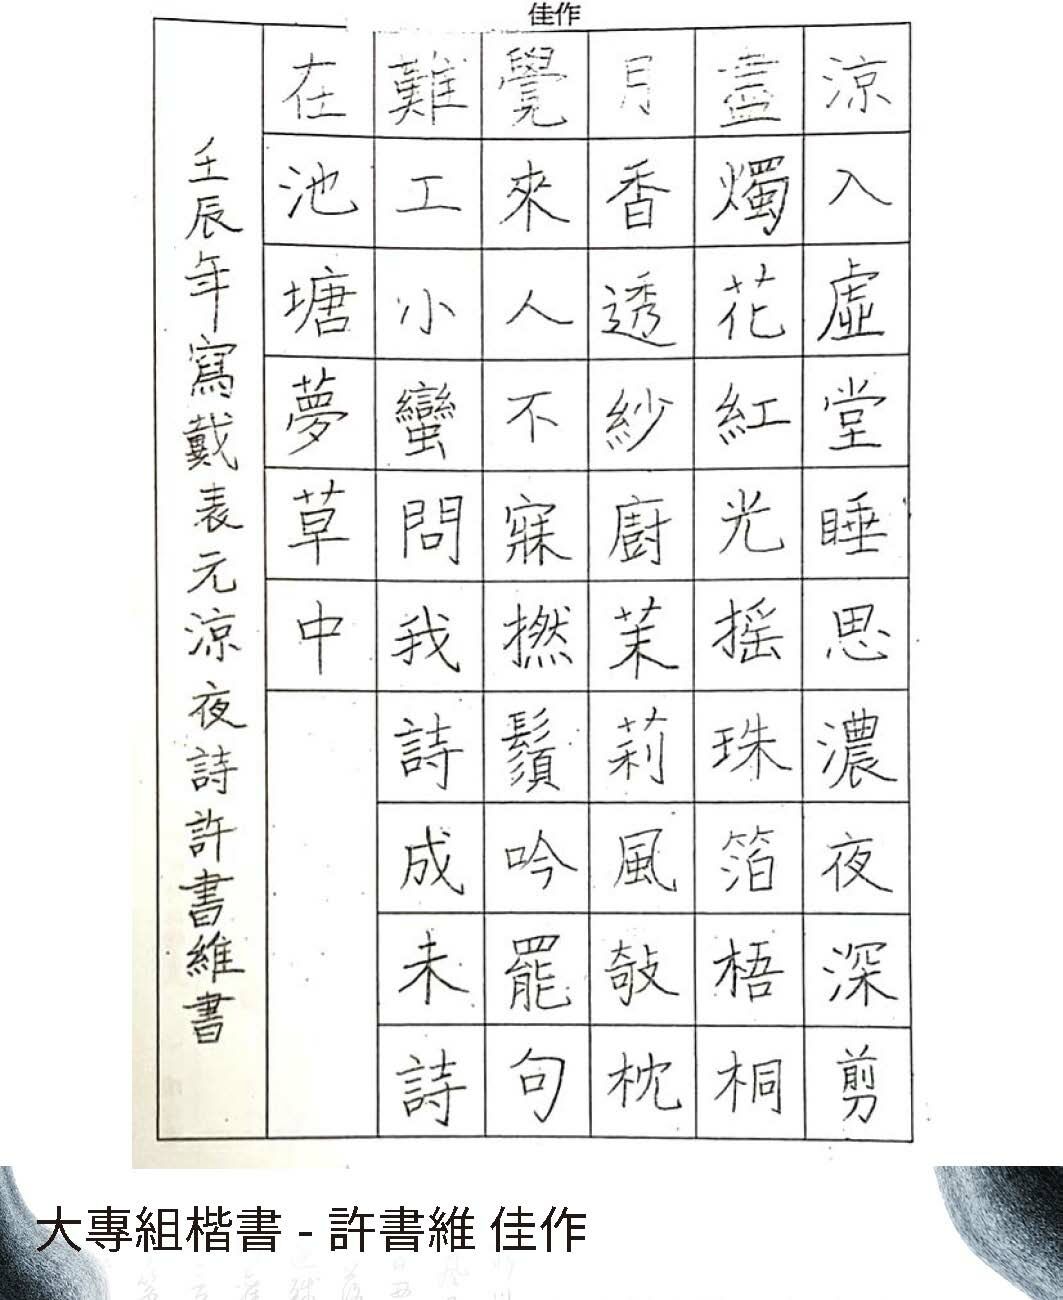 佳作
涼入虛堂睡思濃夜深剪
盡燭花紅光搖珠箔梧桐
月香透紗廚茉莉風敧枕
覺來人不寐撚鬚吟罷句
難工小蠻問我詩成未詩
在池塘夢草中
壬辰年寫戴表元涼夜詩許書維書
大專組楷書 - 許書維 佳作